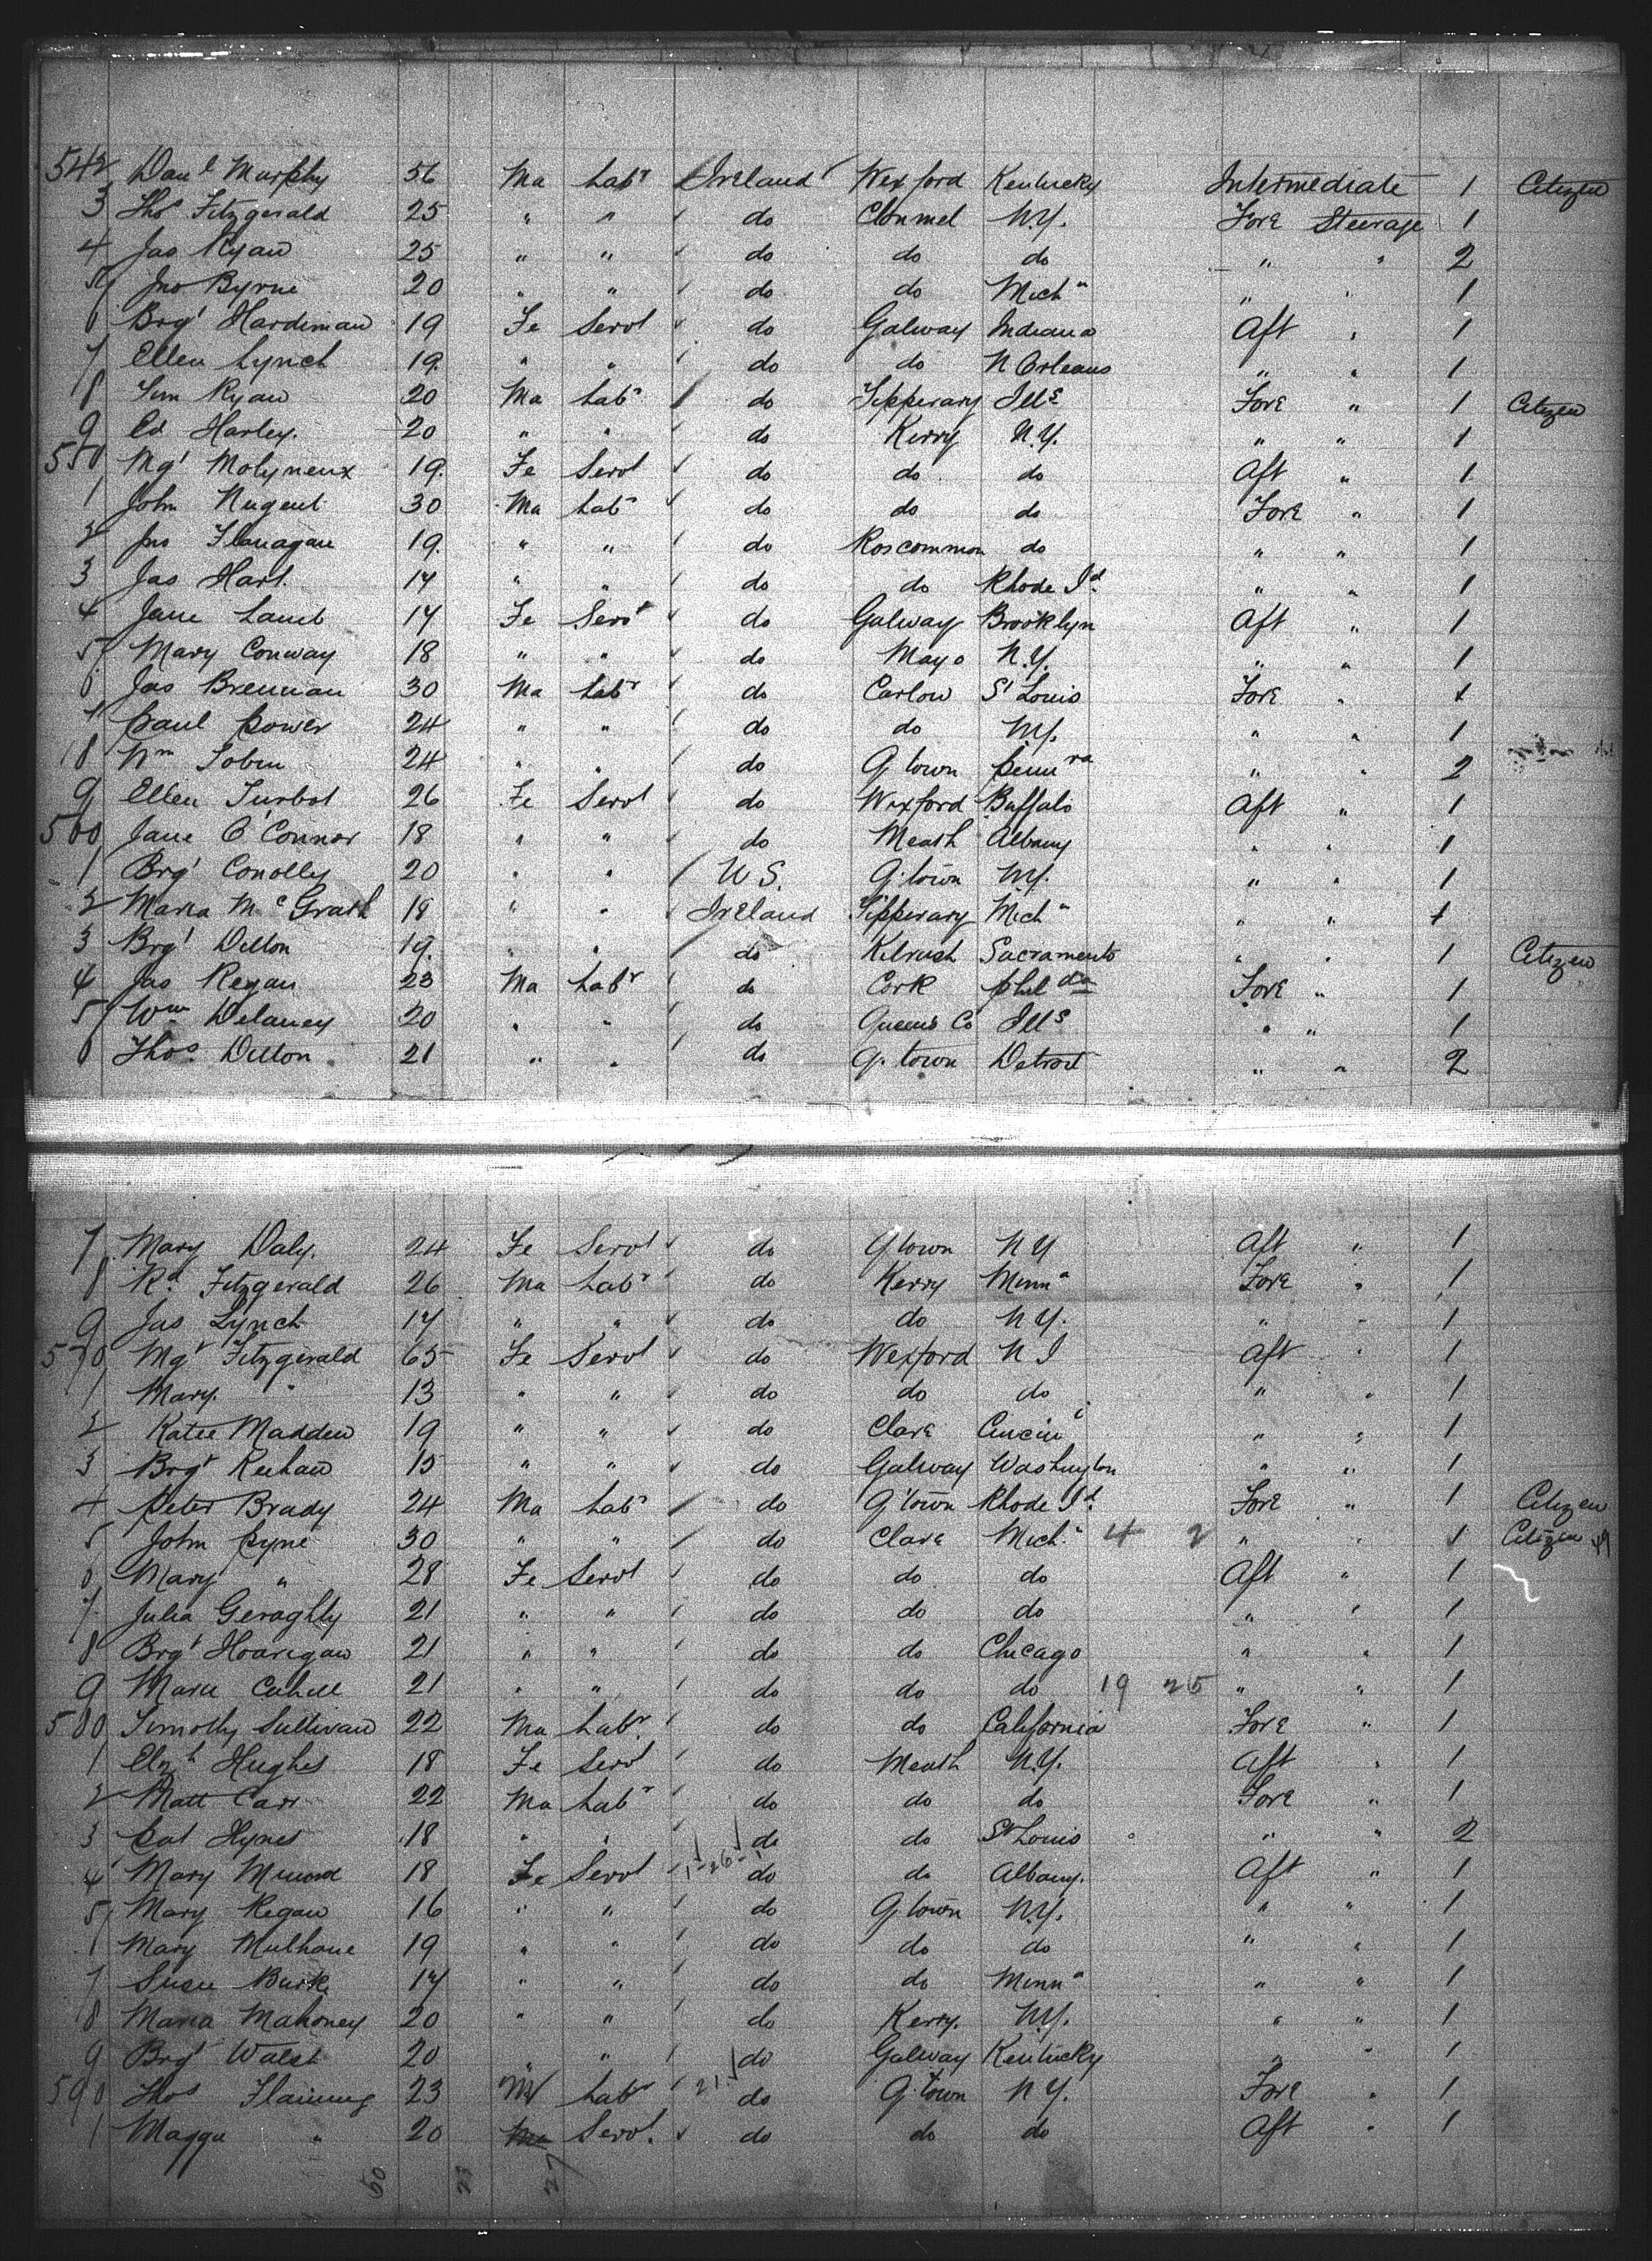 542 Danl Murphy 56 Ma Labr Ireland Wexford Kentucky Intermediate 1 Citizen
3 Thos Fitzgerald 25 " " do Clonmel N.Y. Fore Steerage 1
4 Jas Ryan 25 " " do do do " " 2
5 Jno Byrne 20 " " do do Micha " " 1
6 Brgt Hardiman 19 Fe Servt do Galway Indiana Aft " 1
7 Ellen Lynch 19 " " do do N Orleans " " 1
8 Tim Ryan 20 Ma Labr do Tipperary Ills Fore " 1 Citizen
9 Ed Harley 20 " " do Kerry N.Y. " " 1
550 Mgt Molyneux 19 Fe Servt do do do Aft " 1
1 John Nugent 30 Ma Labr do do do Fore " 1
2 Jno Flanagan 19 " " do Roscommon do " " 1
3 Jas Hart 17 " " do do Rhode Id " " 1
4 Jane Lamb 17 Fe Servt do Galway Brooklyn Aft " 1
5 Mary Conway 18 " " do Mayo N.Y. " " 1
6 Jas Brennan 30 Ma Labr do Carlow St Louis Fore " 1
7 Paul Power 24 " " do do N.Y. " " 1
8 Wm Tobin 24 " " do Q town Pennva " " 2
9 Ellen Turbot 26 Fe Servt do Wexford Buffalo Aft " 1
560 Jane O'Connor 18 " " do Meath Albany " " 1
1 Brgt Conolly 20 " " U S. Q. town N.Y. " " 1
2 Maria McGrath 18 " " Ireland Tipperary Micha " " 1
3 Brgt Dillon 19 " " do Kilrush Sacramento " " 1 Citizen
4 Jas Regan 23 Ma Labr do Cork Philda Fore " 1
5 Wm Delaney 20 " " do Queens Co Ills " " 1
6 Thos. Dillon 21 " " do Q. town Detroit " " 2
7 Mary Daly. 24 Fe Servt do Q town N Y Aft " 1
8 Rd Fitzgerald 26 Ma Labr do Kerry Minna Fore " 1
9 Jas Lynch 17 " " do do N Y. " " 1
570 Mgt Fitzgerald 65 Fe Servt do Wexford N J Aft " 1
1 Mary " 13 " " do do do " " 1
2 Katie Madden 19 " " do Clare Cincini " " 1
3 Brgt Keehan 15 " " do Galway Washington " " 1
4 Peter Brady 24 Ma Labr do Q'town Rhode Id Fore " 1 Citizen
5 John Pyne 30 " " do Clare Micha 4 2 " " 1 Citizen
6 Mary " 28 Fe Servt do do do Aft " 1
7 Julia Geraghty 21 " " do do do " " 1
8 Brgt Hoarigan 21 " " do do Chicago " " 1
9 Maria Cahill 21 " " do do do 19 25 " " 1
580 Timothy Sullivan 22 Ma Labr do do California Fore " 1
1 Elzh Hughes 18 Fe Servt do Meath N.Y. Aft " 1
2 Matt Carr 22 Ma Labr do do do Fore " 1
3 Pat Hynes 18 " " do do St Louis " " 2
4 Mary 18 Fe Servt 1 26 do do Albany. Aft " 1
5 Mary Regan 16 " " do Q. town N.Y. " " 1
6 Mary Mulhane 19 " " do do do " " 1
7 Susie Burke 17 " " do do Minna " " 1
8 Maria Mahoney 20 " " do Kerry. N.Y. " " 1
9 Brgt Walsh 20 " " do Galway Kentucky " " 1
590 Thos Flaming 23 M Labr 21 do Q. town N Y. Fore " 1
1 Maggie " 20 Ma Servt. do do do Aft " 1
50 23 27